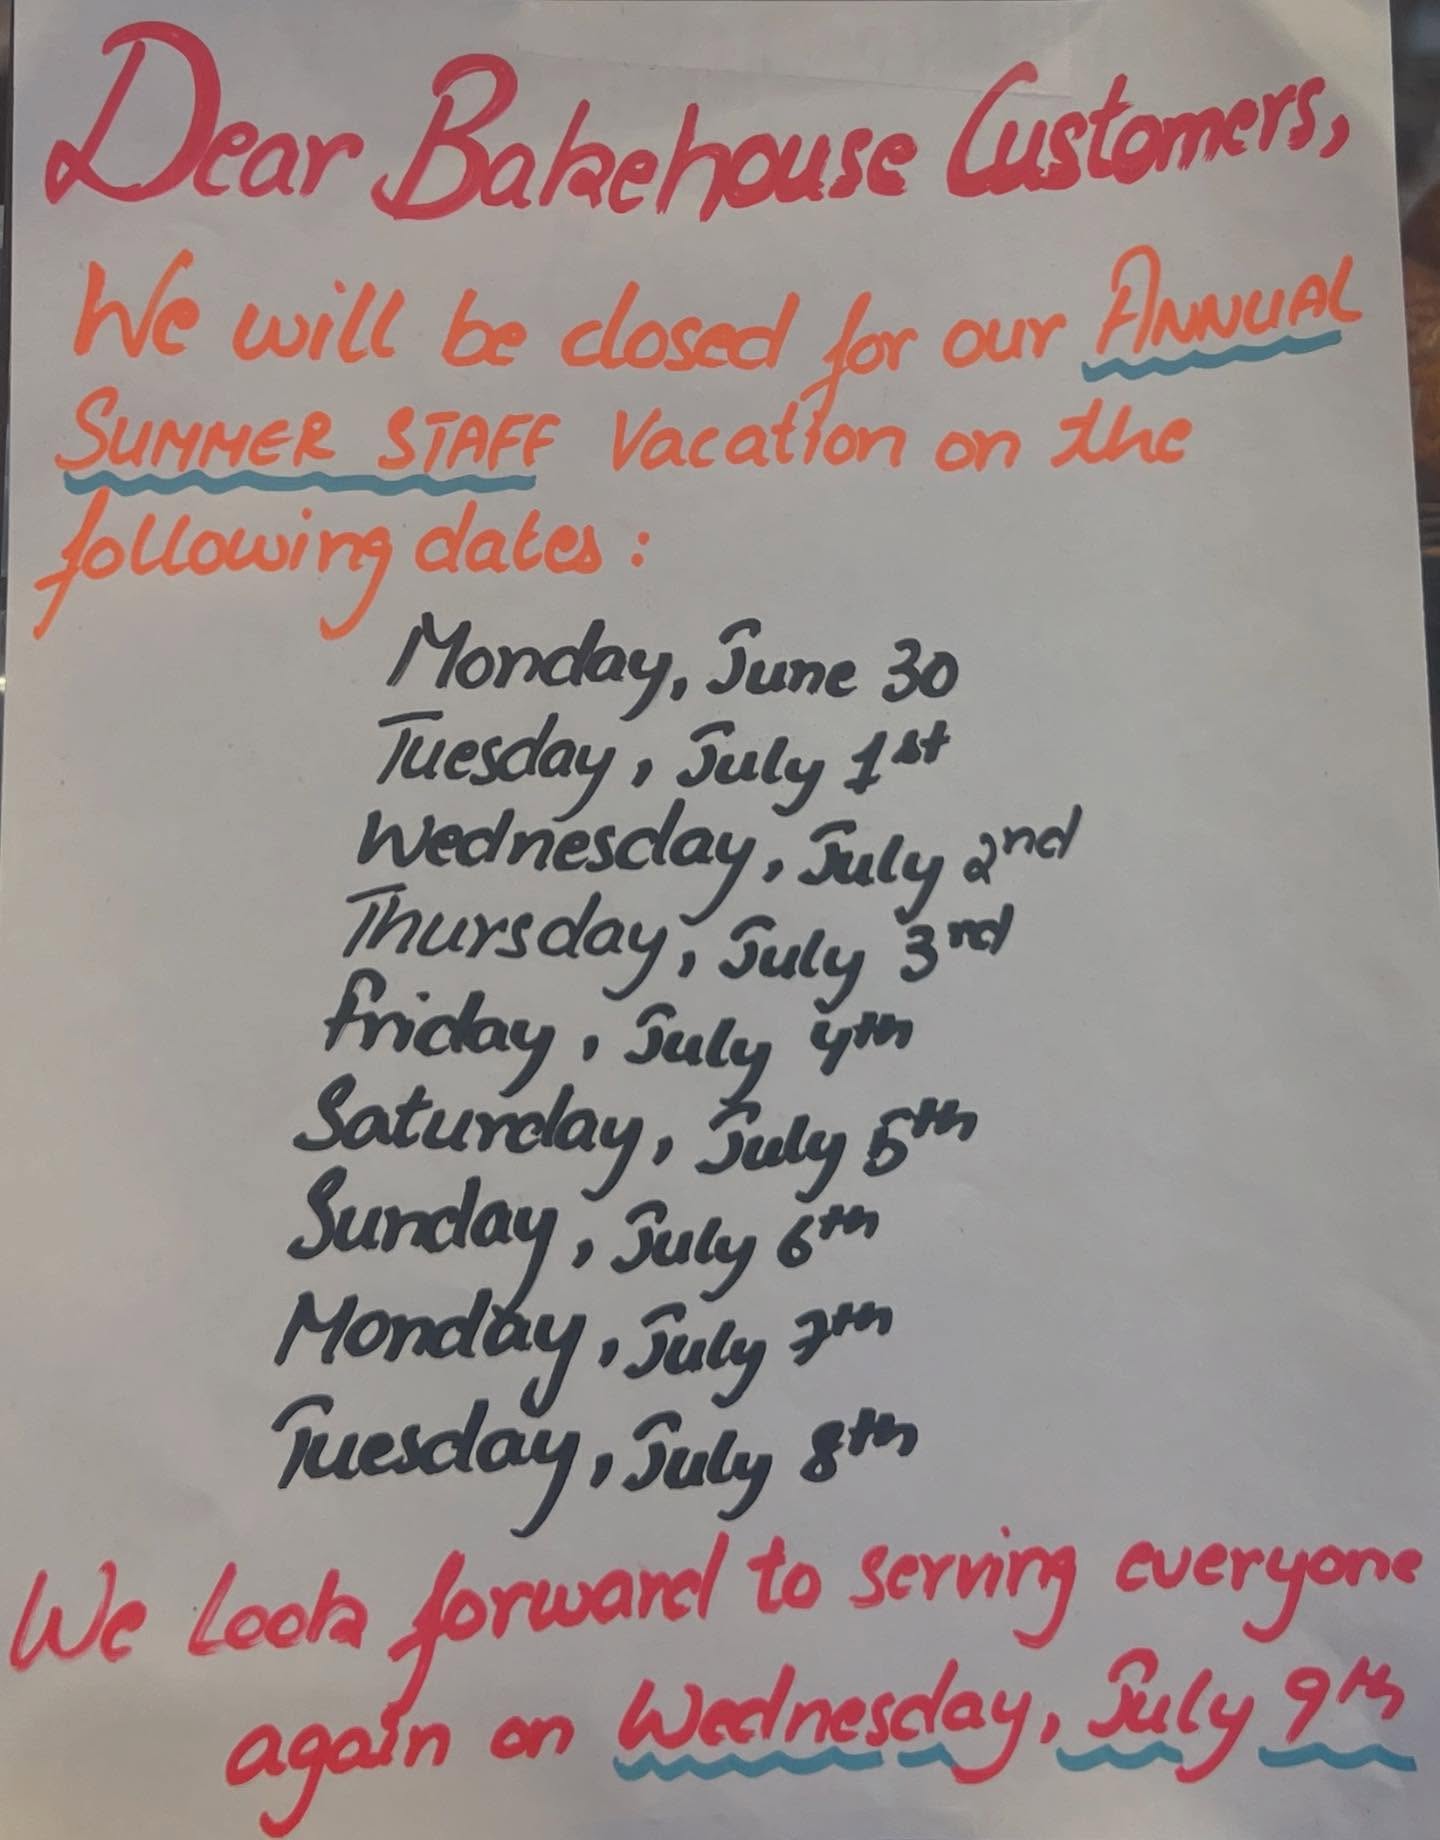 Dear Bakehouse Customers,
We will be closed for our ANNUAL
SUMMER STAFF Vacation on the
following dates:
Monday, June 30
Tuesday, July 1st
Wednesday, July 2nd
Thursday, July 3rd
Friday, July 4th
Saturday, July 5th
Sunday, July 6th
Monday, July 7th
Tuesday, July 8th
We look forward to serving everyone
again on Wednesday, July 9th